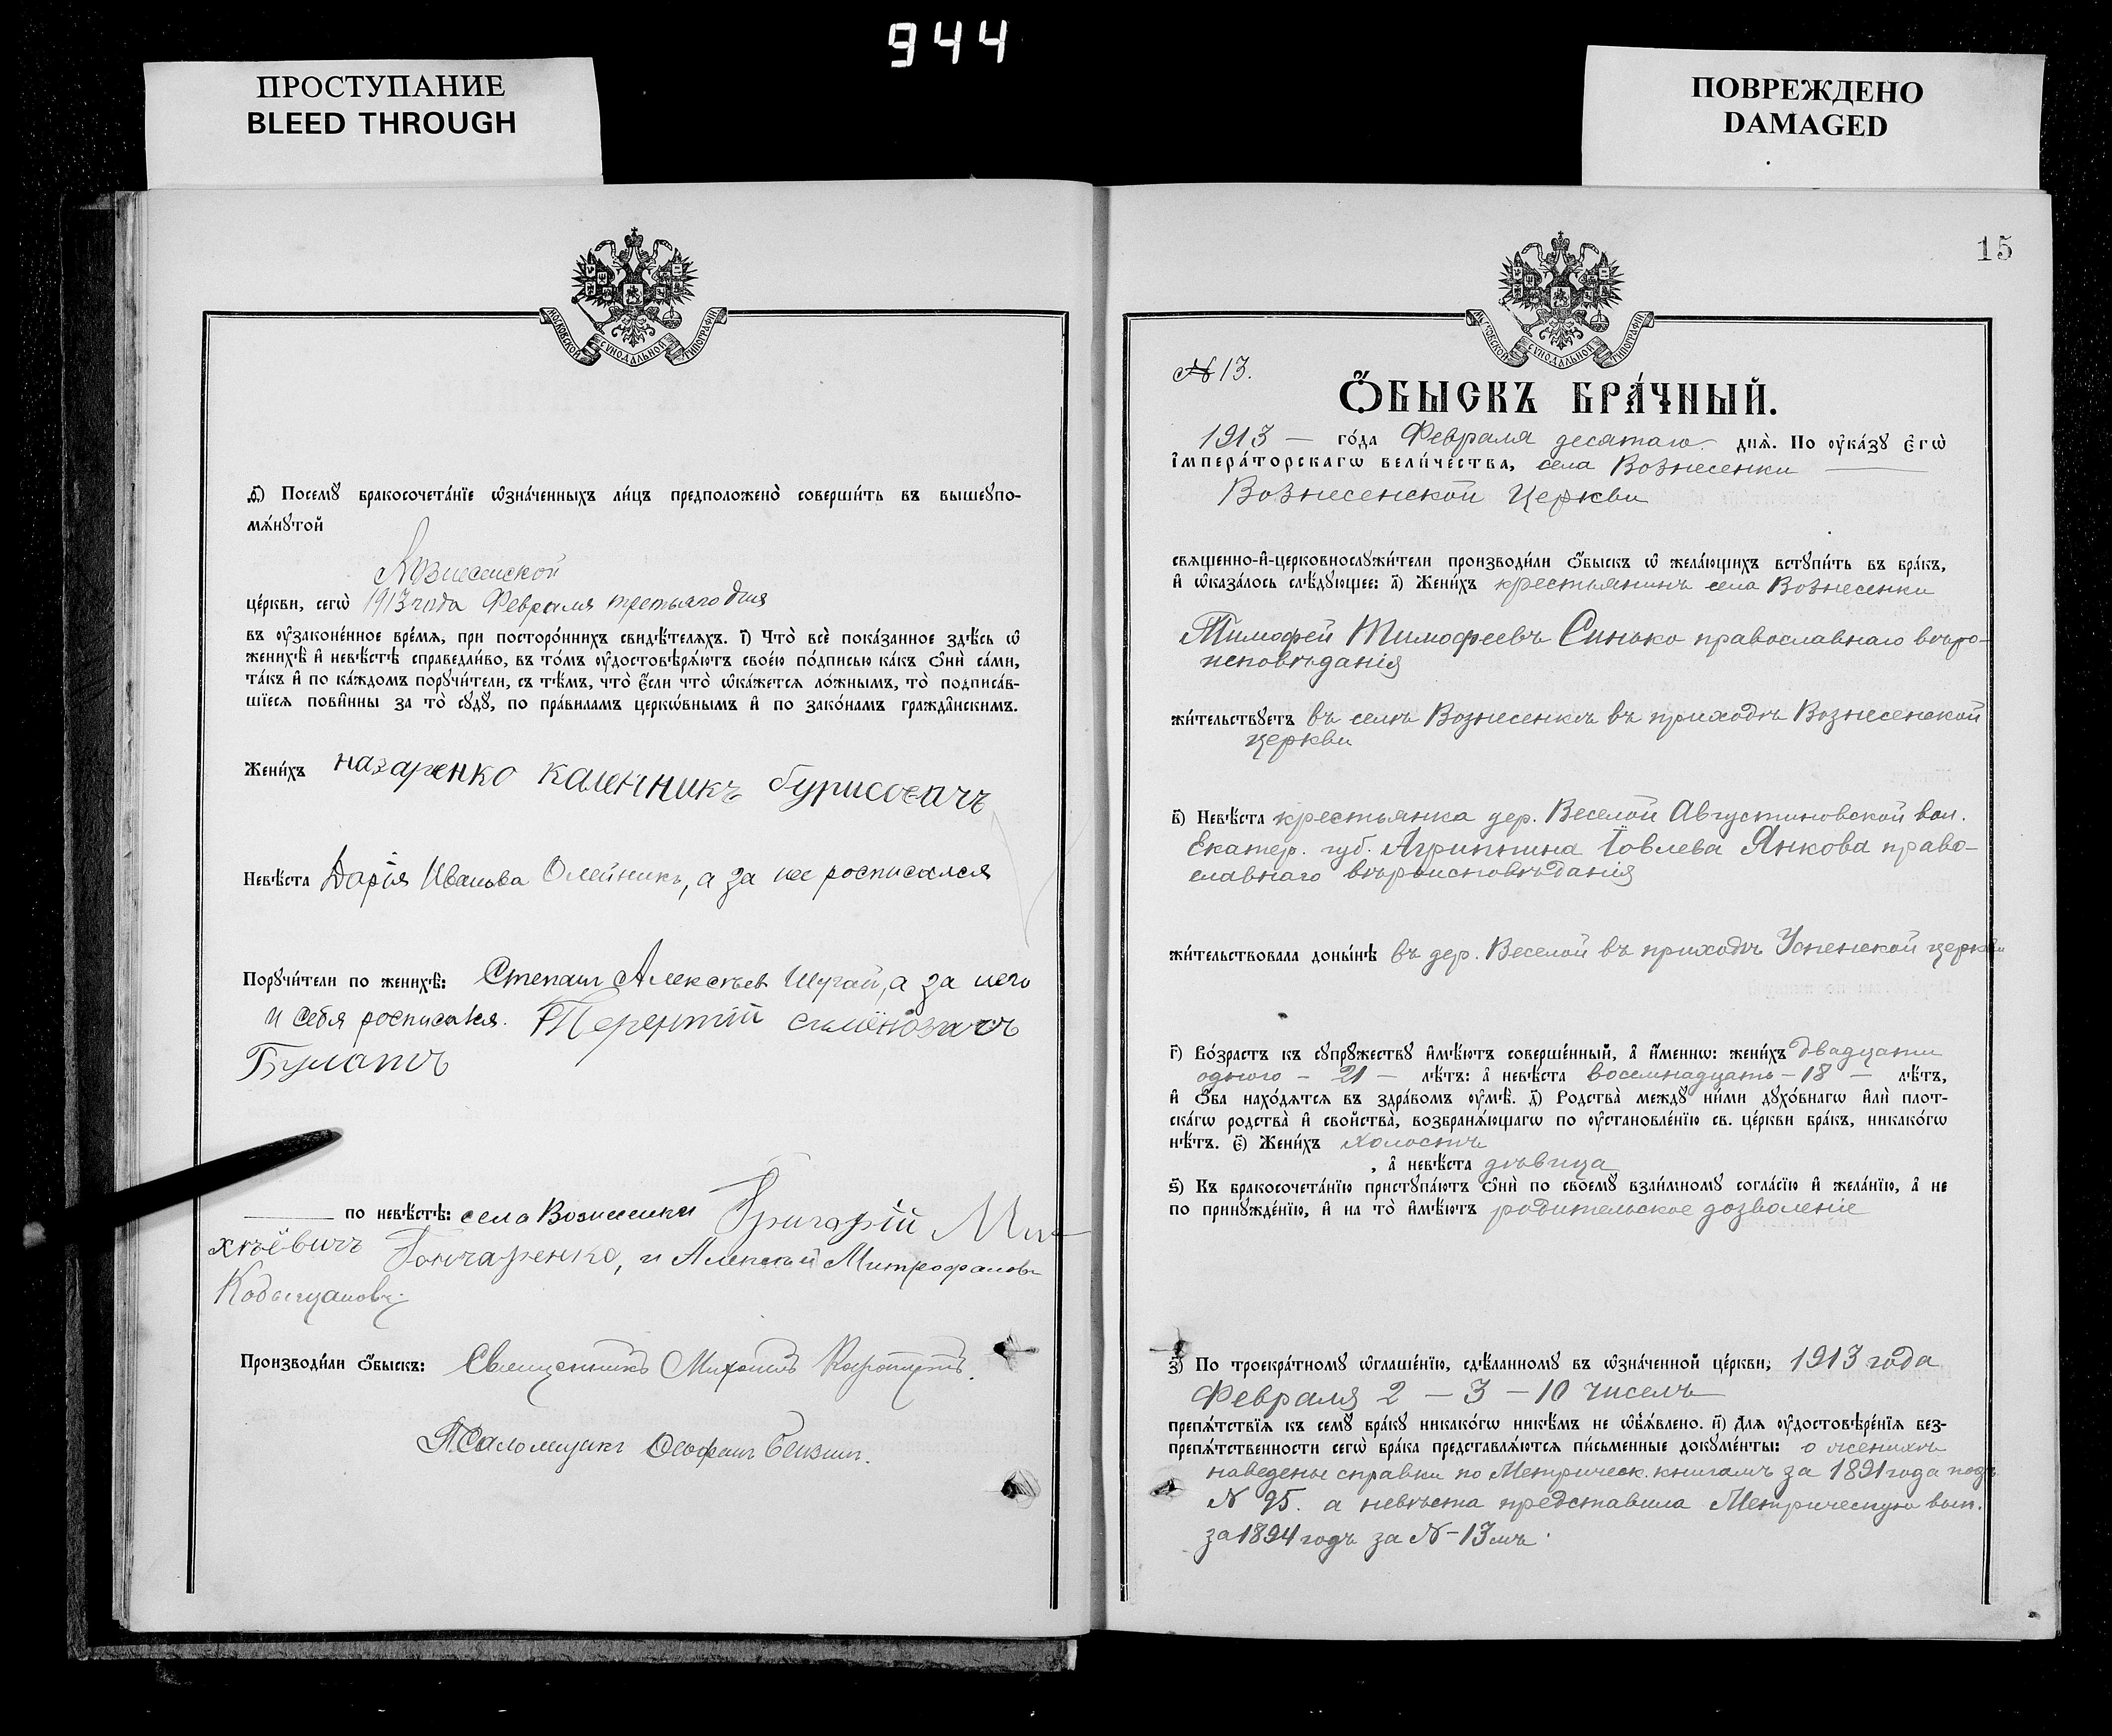 944
ПРОСТУПАНИЕ
BLEED THROUGH
ПОВРЕЖДЕНО
DAMAGED
МОСКОВСКОЙ СѴНОДАЛЬНОЙ ТИПОГРАФІИ
д҃і) Посемꙋ̀ бракосочета́нїе ѡ҆зна́ченныхъ ли́цъ предположено̀ соверши́ть въ вышеꙋпо-
мѧ́нꙋтой
Вознесенской
це́ркви, сегѡ̀ 1913 года Февраля третьяго дня
въ ᲂу҆законе́нное вре́мѧ, при посторо́ннихъ свидѣ́телѧхъ. і҃) Что̀ всѐ пока́занное здѣ́сь ѡ҆
женихѣ̀ и҆ невѣ́стѣ справедли́во, въ то́мъ ᲂу҆достовѣрѧ́ютъ свое́ю по́дписью ка́къ ѻ҆нѝ са́ми,
та́къ и҆ по ка́ждомъ порꙋчи́тели, съ тѣ́мъ, что̀ є҆́сли что̀ ѡ҆ка́жетсѧ ло́жнымъ, то̀ подписа́в-
шїесѧ пови́нны за то̀ сꙋдꙋ̀, по пра́виламъ церко́внымъ и҆ по зако́намъ гражда́нскимъ.
Жени́хъ назаренко каленникъ бурисовичъ
Невѣ́ста Дарія Иванова Олейникъ, а за нее росписался
Порꙋчи́тели по женихѣ̀: Степанъ Алексѣев Шугай, а за него
и себя росписался. Терентій семёновичъ
Булатъ
по невѣ́стѣ: села Вознесенки Григорій Ми-
хѣёвичъ Гончаренко, и Алексѣй Митрофановъ
Производи́ли ѻ҆́быскъ: Священникъ Михаилъ
Псаломщикъ Ѳеофанъ
15
МОСКОВСКОЙ СѴНОДАЛЬНОЙ ТИПОГРАФІИ
№ 13.
Ѻ҆́БЫСКЪ БРА́ЧНЫЙ.
1913 — го́да Февраля десятаго – днѧ̀. По ᲂу҆ка́зꙋ є҆гѡ̀
і҆мпера́торскагѡ вели́чества, села Вознесенки
Вознесенской Церкви
свѧщенно-и҆-церковнослꙋжи́тели производи́ли ѻ҆́быскъ ѡ҆ жела́ющихъ встꙋпи́ть въ бра́къ,
и҆ ѡ҆каза́лось слѣ́дꙋющее: а҃) Жени́хъ крестьянинъ села Вознесенки
Тимофей Тимофеевъ Синько православнаго вѣро-
исповѣданія
жи́тельствꙋетъ въ селѣ Вознесенкѣ въ приходѣ Вознесенской
церкви
в҃) Невѣ́ста крестьянка дер. Веселой Августиновской вол.
Екатер. губ. Агриппина Іовлева Янкова право-
славнаго вѣроисповѣданія
жи́тельствовала доны́нѣ въ дер. Веселой въ приходѣ Успенской церкви
г҃) Во́зрастъ къ сꙋпрꙋ́жествꙋ и҆мѣ́ютъ соверше́нный, а҆ и҆́меннѡ: жени́хъ двадцати
одного – 21 – лѣ́тъ: а҆ невѣ́ста восемнадцать – 18 – лѣ́тъ,
и҆ ѻ҆́ба нахо́дѧтсѧ въ здра́вомъ ᲂу҆мѣ̀. д҃) Родства̀ междꙋ̀ ни́ми дꙋхо́внагѡ и҆лѝ плот-
ска́гѡ родства̀ и҆ свойства̀, возбранѧ́ющагѡ по ᲂу҆становле́нїю св. це́ркви бра́къ, никако́гѡ
нѣ́тъ. є҃) Жени́хъ холостъ
, а҆ невѣ́ста дѣвица
ѕ҃) Къ бракосочета́нїю пристꙋпа́ютъ ѻ҆нѝ по своемꙋ̀ взаи́мномꙋ согла́сїю и҆ жела́нїю, а҆ не
по принꙋжде́нїю, и҆ на то̀ и҆мѣ́ютъ родительское дозволеніе
з҃) По троекра́тномꙋ ѡ҆глаше́нїю, сдѣ́ланномꙋ въ ѡ҆зна́ченной це́ркви, 1913 года
Февраля 2 – 3 – 10 чиселъ
препѧ́тствїѧ къ семꙋ̀ бра́кꙋ никако́гѡ никѣ́мъ не ѡ҆б̾ѧ́влено. и҃) Длѧ ᲂу҆достовѣре́нїѧ без-
препѧ́тственности сегѡ̀ бра́ка представлѧ́ютсѧ пи́сьменные докꙋме́нты: о женихѣ
наведены справки по Метрическ. книгамъ за 1891 года подъ
№ 95. а невѣста представила Метрическую вып.
за 1894 годъ за № – 13 мъ.